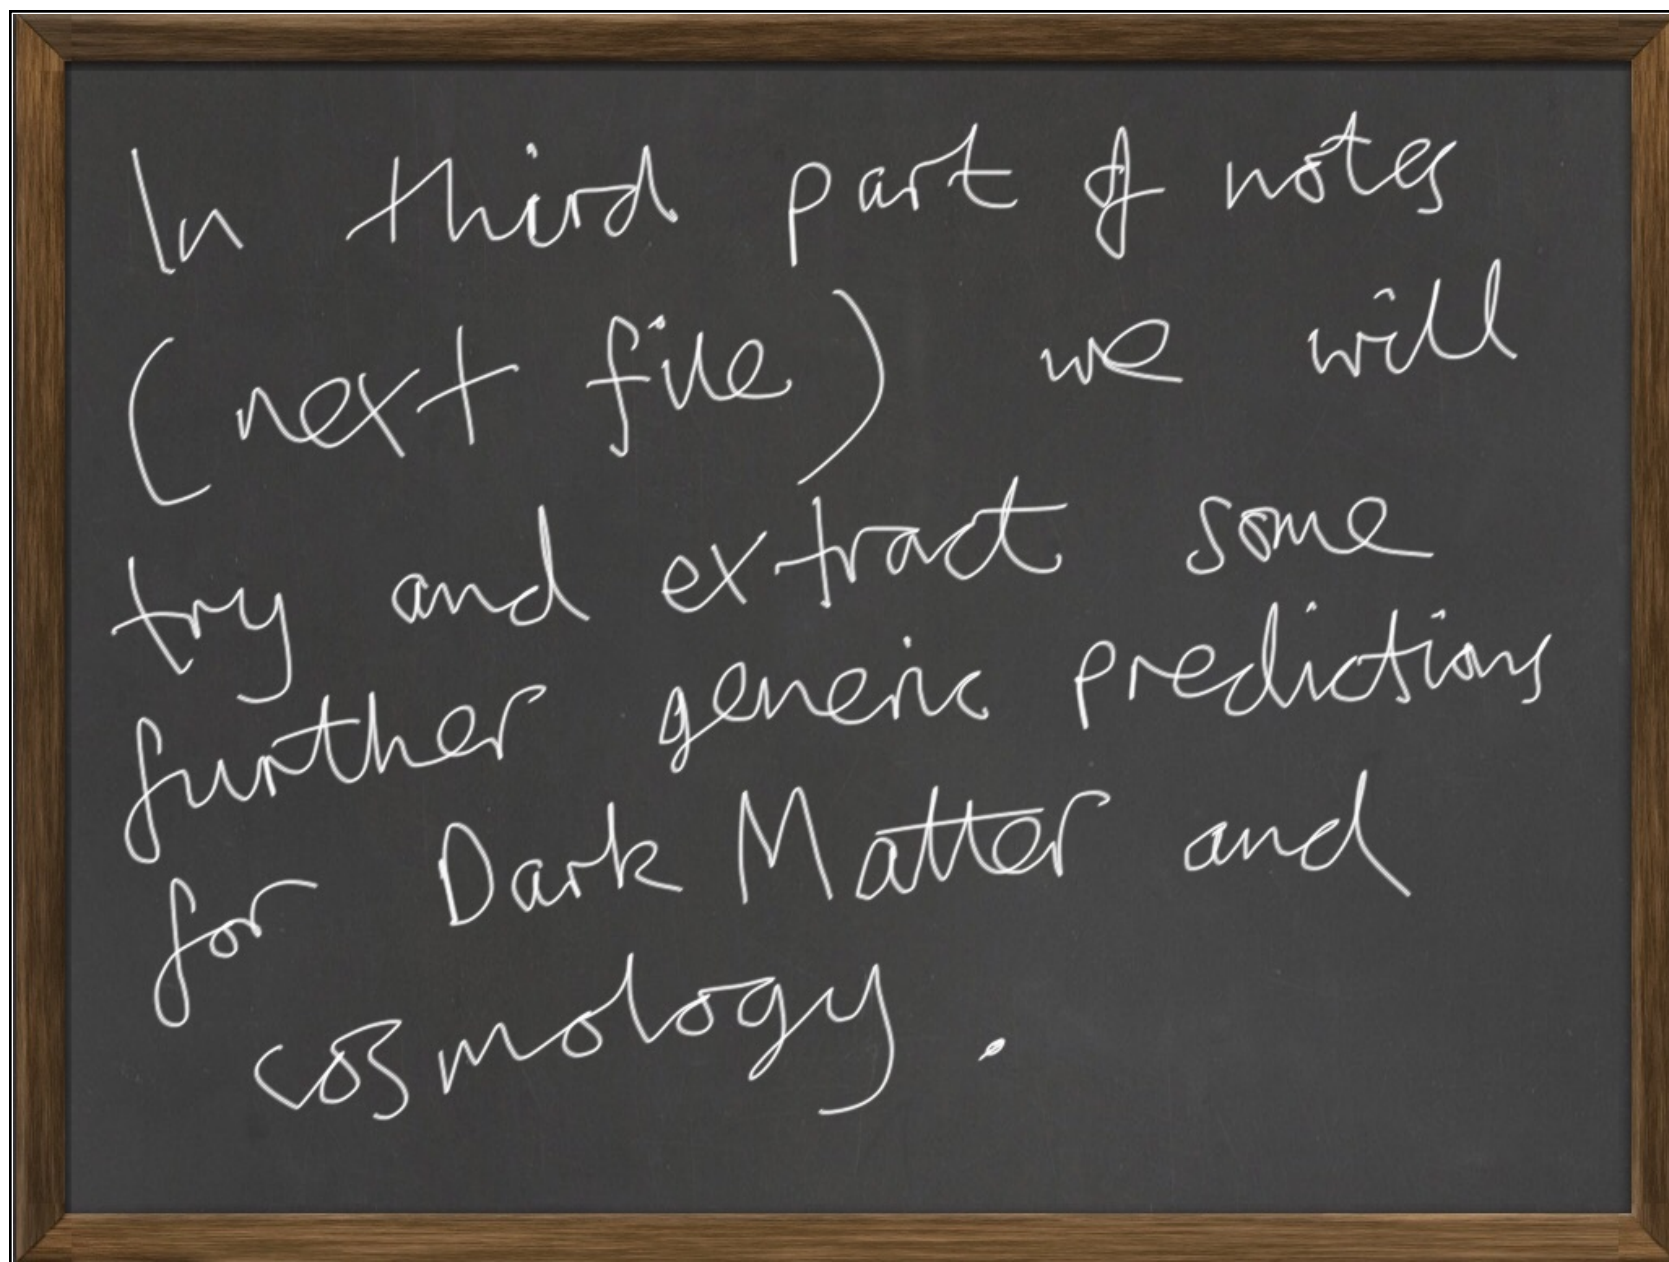 In third part of notes
(next file) we will
try and extract some
further generic predictions
for Dark Matter and
cosmology.